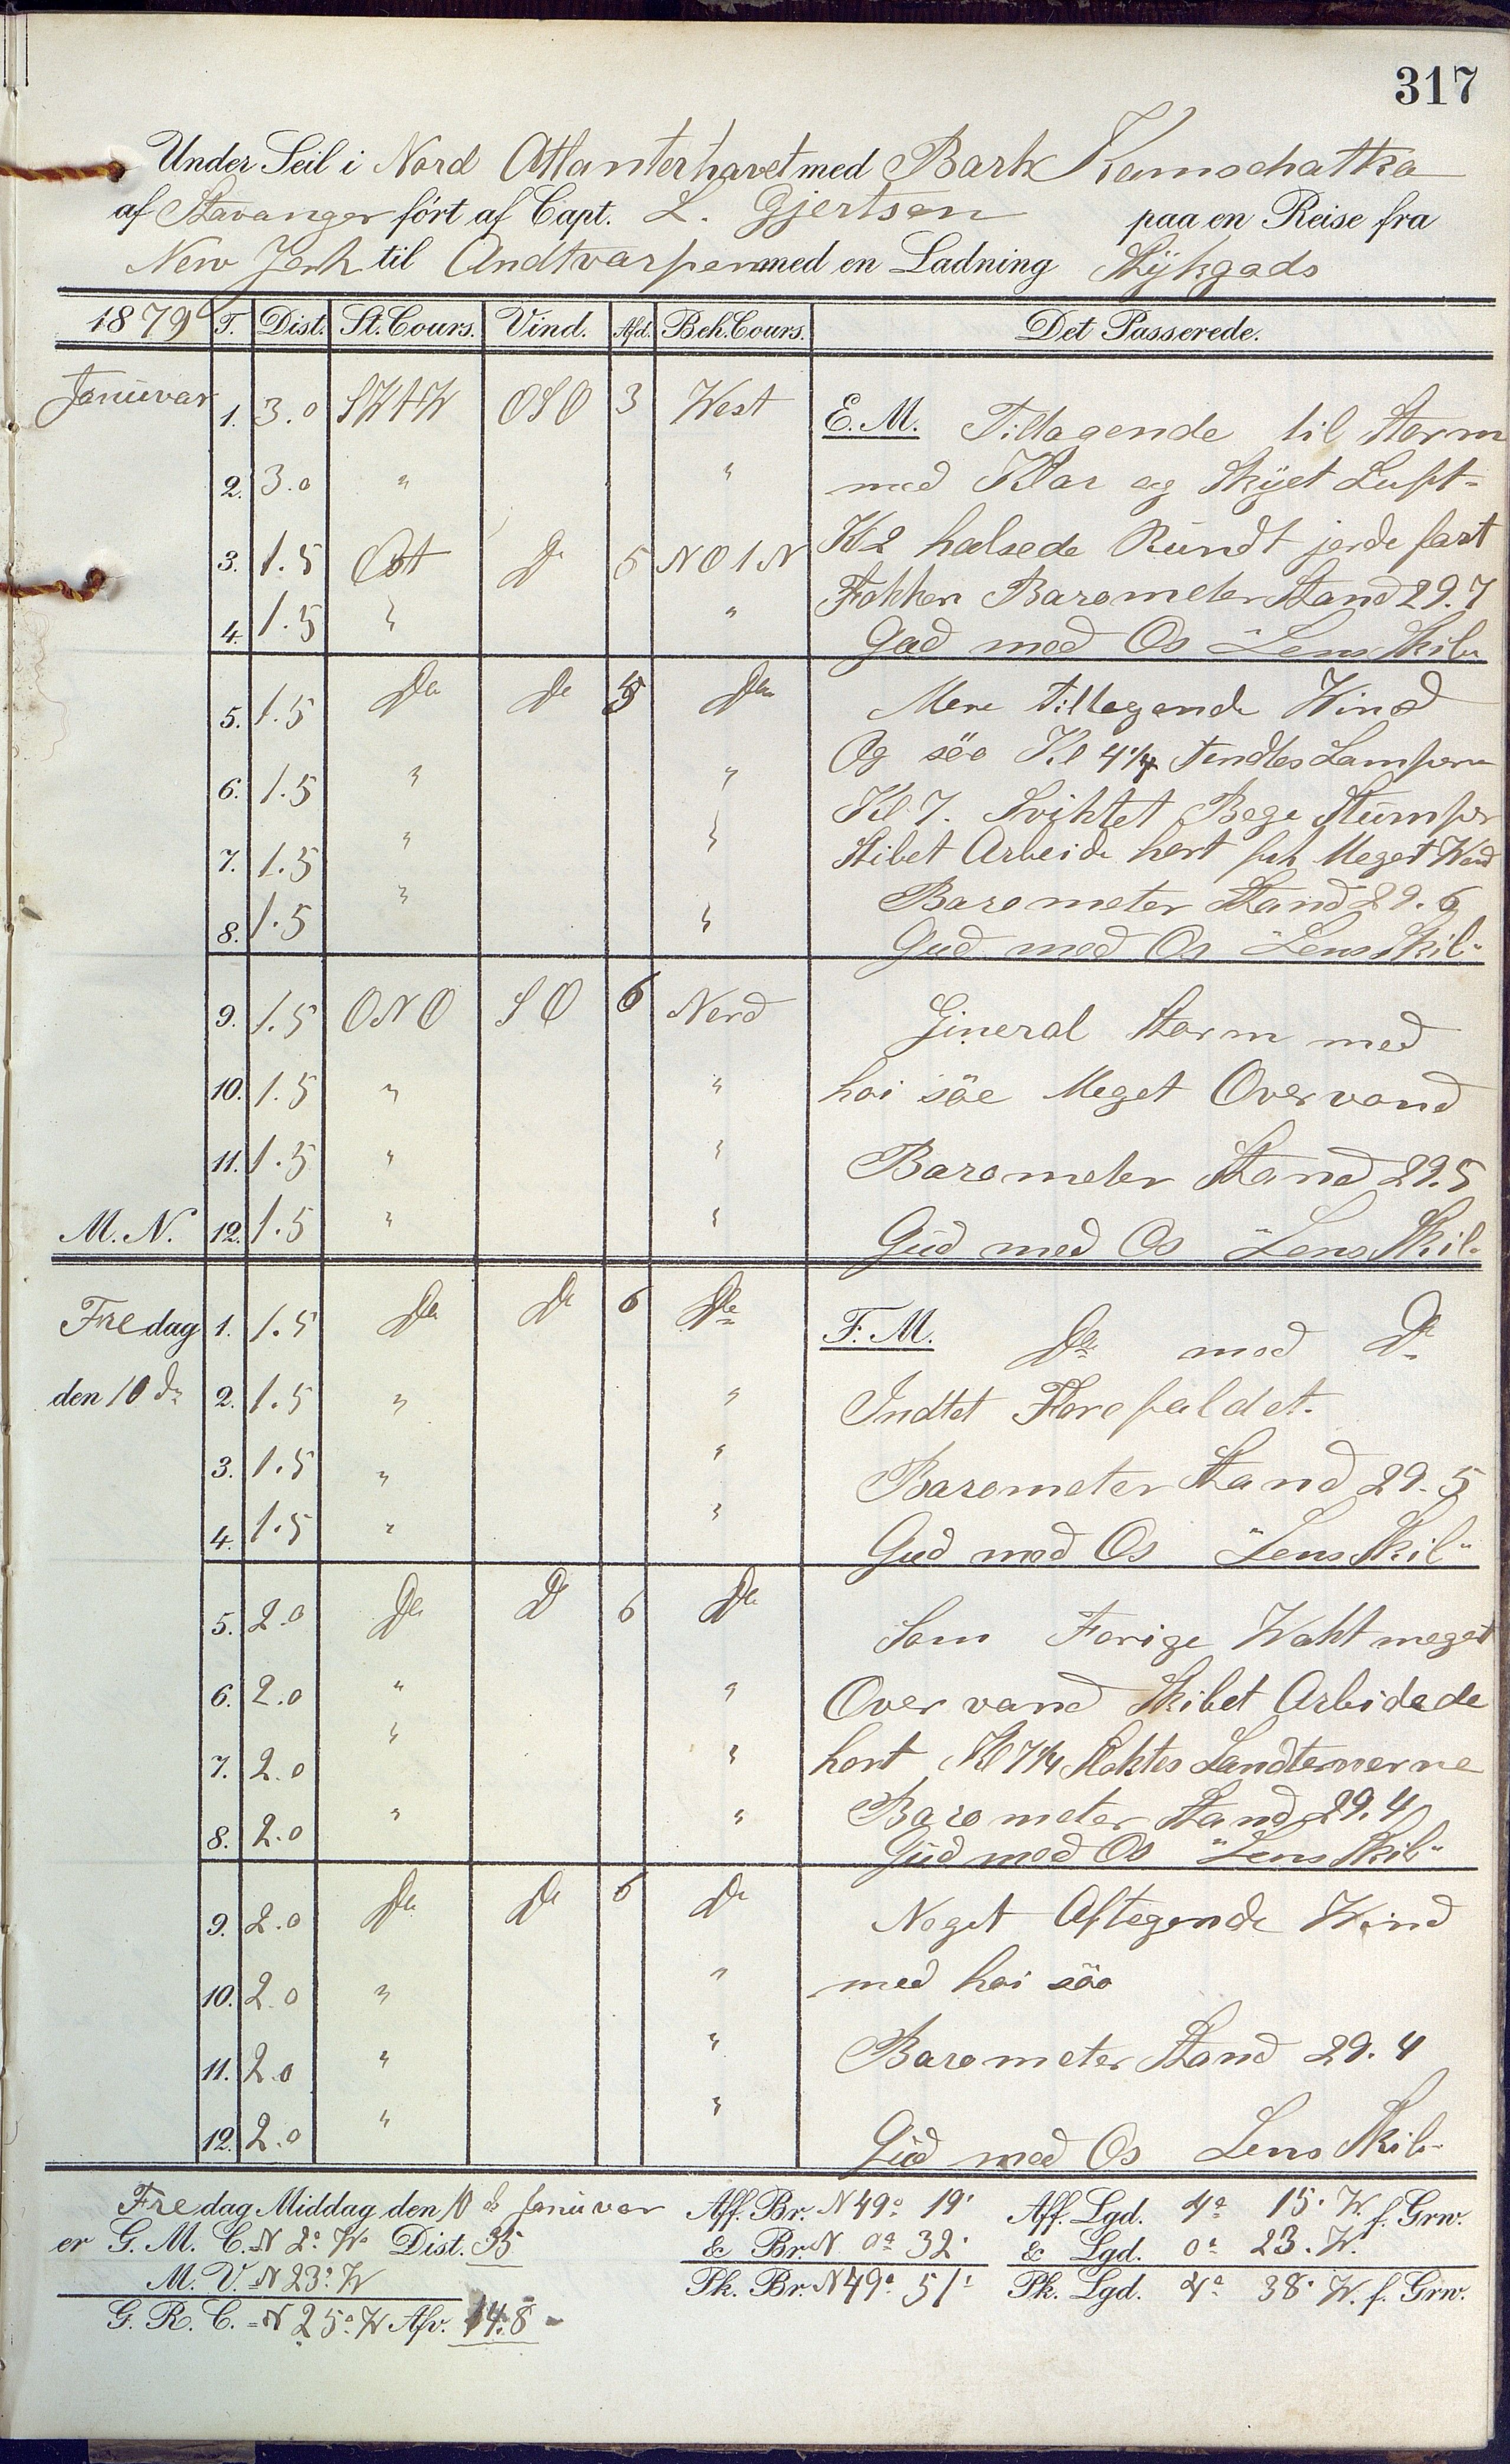 317
Under Seil i Nord Atlanterhavet med Bark Kamschatka
af Stavanger fört af Capt. L. Gjertsen paa en Reise fra
New Jork til Andtvarpen med en Ladning Stÿkgods
1879 T. Dist. St. Cours. Vind. Afd. Beh. Cours. Det Passerede.
Januvar 1. 3.0 SWtW OSO 3 West E.M. Tiltagende til Storm
2. 3.0 " " med Klar og Skÿet Luft-
3. 1.5 Ost Do 5 NOtN Kl 2 halsede Rundt jorde fast
4. 1.5 " " Fokken Barometer Stand 29.7
Gud med Os "Lens Skib"
5. 1.5 Do Do 5 Do Mere tiltagende Wind
Og söo Kl 4 1/4 tendtes Lamperne
6. 1.5 " " Kl 7. Sviktet Bege Stumper
7. 1.5 " " Skibet Arbeide hort fik Meget Wand
8. 1.5 " " Barometer Stand 29.6
Gud med Os "Lens Skib"
9. 1.5 ONO SO 6 Nord Gineral Storm med
10. 1.5 " " hoi söe Meget Overvand
11. 1.5 " " Barometer Stand 29.5
M. N. 12. 1.5 " " Gud med Os "Lens Skib"
Fredag 1. 1.5 Do Do 6 Do F. M. Do med Do
den 10 de 2. 1.5 " " Indtet Forefaldet.
3. 1.5 " " Barometer Stand 29.5
4. 1.5 " " Gud med Os "Lens Skib"
5. 2.0 Do Do 6 Do Som Forige Wakt meget
6. 2.0 " " Over vand Skibet Arbidede
7. 2.0 " " hort Kl 7 1/4 Sloktes Landternerne
8. 2.0 " " Barometer Stand 29.4
Gud med Os "Lens Skib"
9. 2.0 Do Do 6 Do Noget Aftegende Wind
10. 2.0 " " med hoi söo
11. 2.0 " " Barometer Stand 29.4
12. 2.0 " " Gud med Os Lens Skib"
Fredag Middag den 10 de Januvar Aff. Br. N 49° 19' Aff. Lgd. 4° 15' W. f. Grw.
er G. M. C. = N 2° W Dist. 35 & Br. N 0° 32' & Lgd. 0° 23' W.
M. V. = N 23° W Pk. Br. N 49° 51' Pk. Lgd. 4° 38' W. f. Grw.
G. R. C. = N 25° W Afv. 14.8